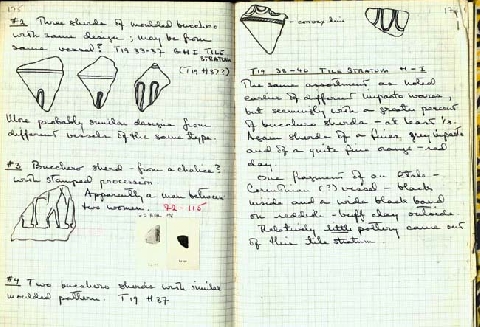 #2 Three sherds of moulded bucchero
with same design; may be from
same vessel? T19 33-37 G-H-I TILE
STRATUM
(T19 H37?)
More probably similar designs from
different vessels of the same type.
#3 Bucchero sherd - from a chalice?
with stamped procession
Apparently a man between
two women. 72-115
#4 Two bucchero sherds with similar
moulded pattern. T19 H37
174
T19 38-40 TILE STRATUM H-I
The same assortment as noted
earlier of different impasto wares,
but seemingly with a greater percent
of bucchero sherds - at least ½.
Again sherds of a fine, grey impasto
and of a quite fine orange-red
clay.
One fragment of an Etrusco-
Corinthian (?) vessel - black
inside and a wide black band
on reddish-buff clay outside.
Relatively little pottery came out
of this tile stratum.